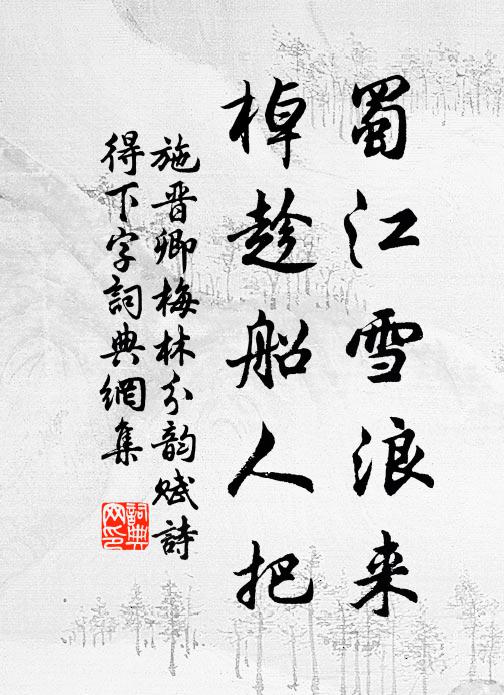 蜀江雪浪来
棹趁船人把
施晋卿梅林分韵赋詩
得下字詞典網集
詞典网印